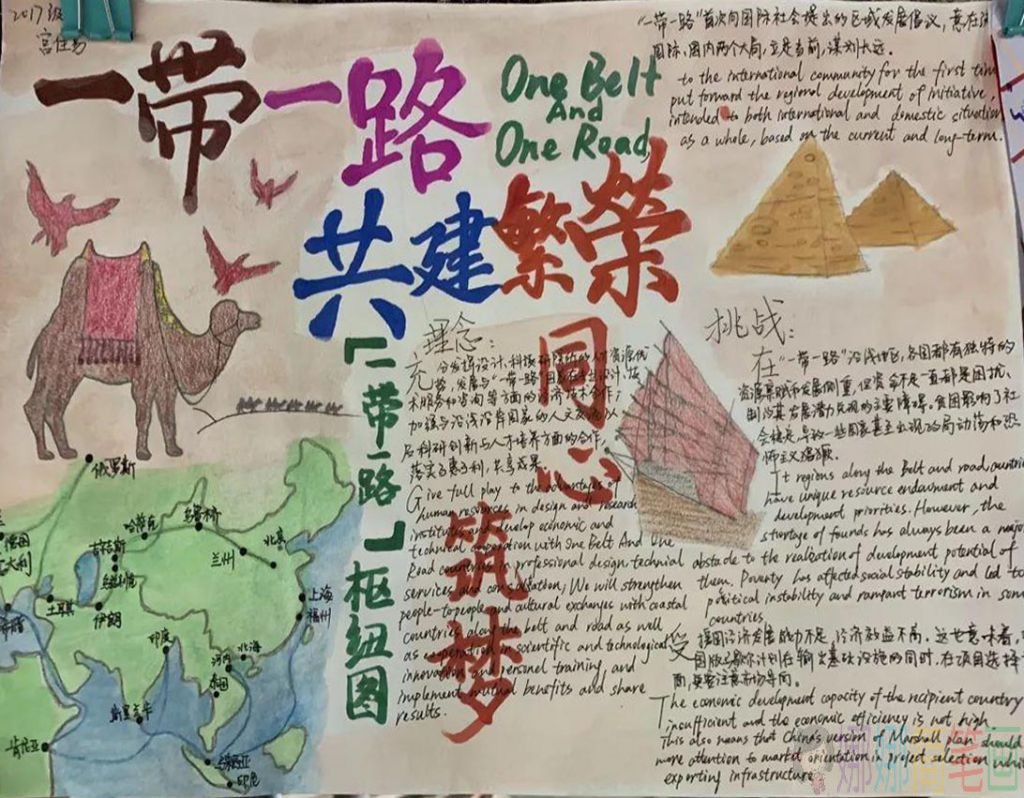 2017级
宫佳易
一带一路
One Belt
And
One Road
共建繁榮
同心筑梦
"一带一路"首次向国际社会提出的区域发展倡议，意在
国际、国内两个大局，立足当前，谋划长远。
to the international community for the first time
put forward the regional development of initiative,
intended to both international and domestic situation
as a whole, based on the current and long-term.
理念：
充分发挥设计、科技研院所的人才资源优
势，发展与"一带一路"国家在专业设计、技
术服务和咨询等方面的经济技术合作；
加强与沿线沿岸国家的人文交流以
及科研创新与人才培养方面的合作，
落实互惠互利，共享成果。
Give full play to the advantages of
human resources in design and research
institutes and develop echonic and
technical cooperation with One Belt And One
Road countries in professional design, technical
services and consultation, We will strengthen
people-to-people and cultural exchanges with coastal
countries along the belt and road as well
as cooperation in scientific and technological
innovation and personal training, and
implement mutual benefits and share
results.
「一带一路」枢纽图
挑战：
在"一带一路"沿线地区，各国都有独特的
资源禀赋和发展侧重，但资金不足一直都是困扰、
制约其发展潜力实现的主要障碍。贫困影响了社
会稳定导致一些国家甚至出现政局动荡和恐
怖主义猖獗。
It regions along the Belt and road, countries
have unique resource endowment and
development priorities. However, the
shortage of founds has always been a major
obstacle to the realization of development potential of
them. Poverty has affected social stability and led to
political instability and rampant terrorism in some
countries.
受援国经济发展能力不足，经济效益不高。这也意味着，
国版马歇尔计划在输出基础设施的同时，在项目选择
面，更要注意市场导向。
The economic development capacity of the recipient country
insufficient and the economic efficiency is not high
This also means that China's version of Marshall plan should
more attention to market orientation in project selection whi
exporting infrastructure
俄罗斯
德国
意大利
土耳其
伊朗
哈萨克
乌鲁木齐
兰州
北京
上海
福州
印度
北海
河内
泰国
斯里兰卡
肯尼亚
马来西亚
印尼
娜娜简笔画